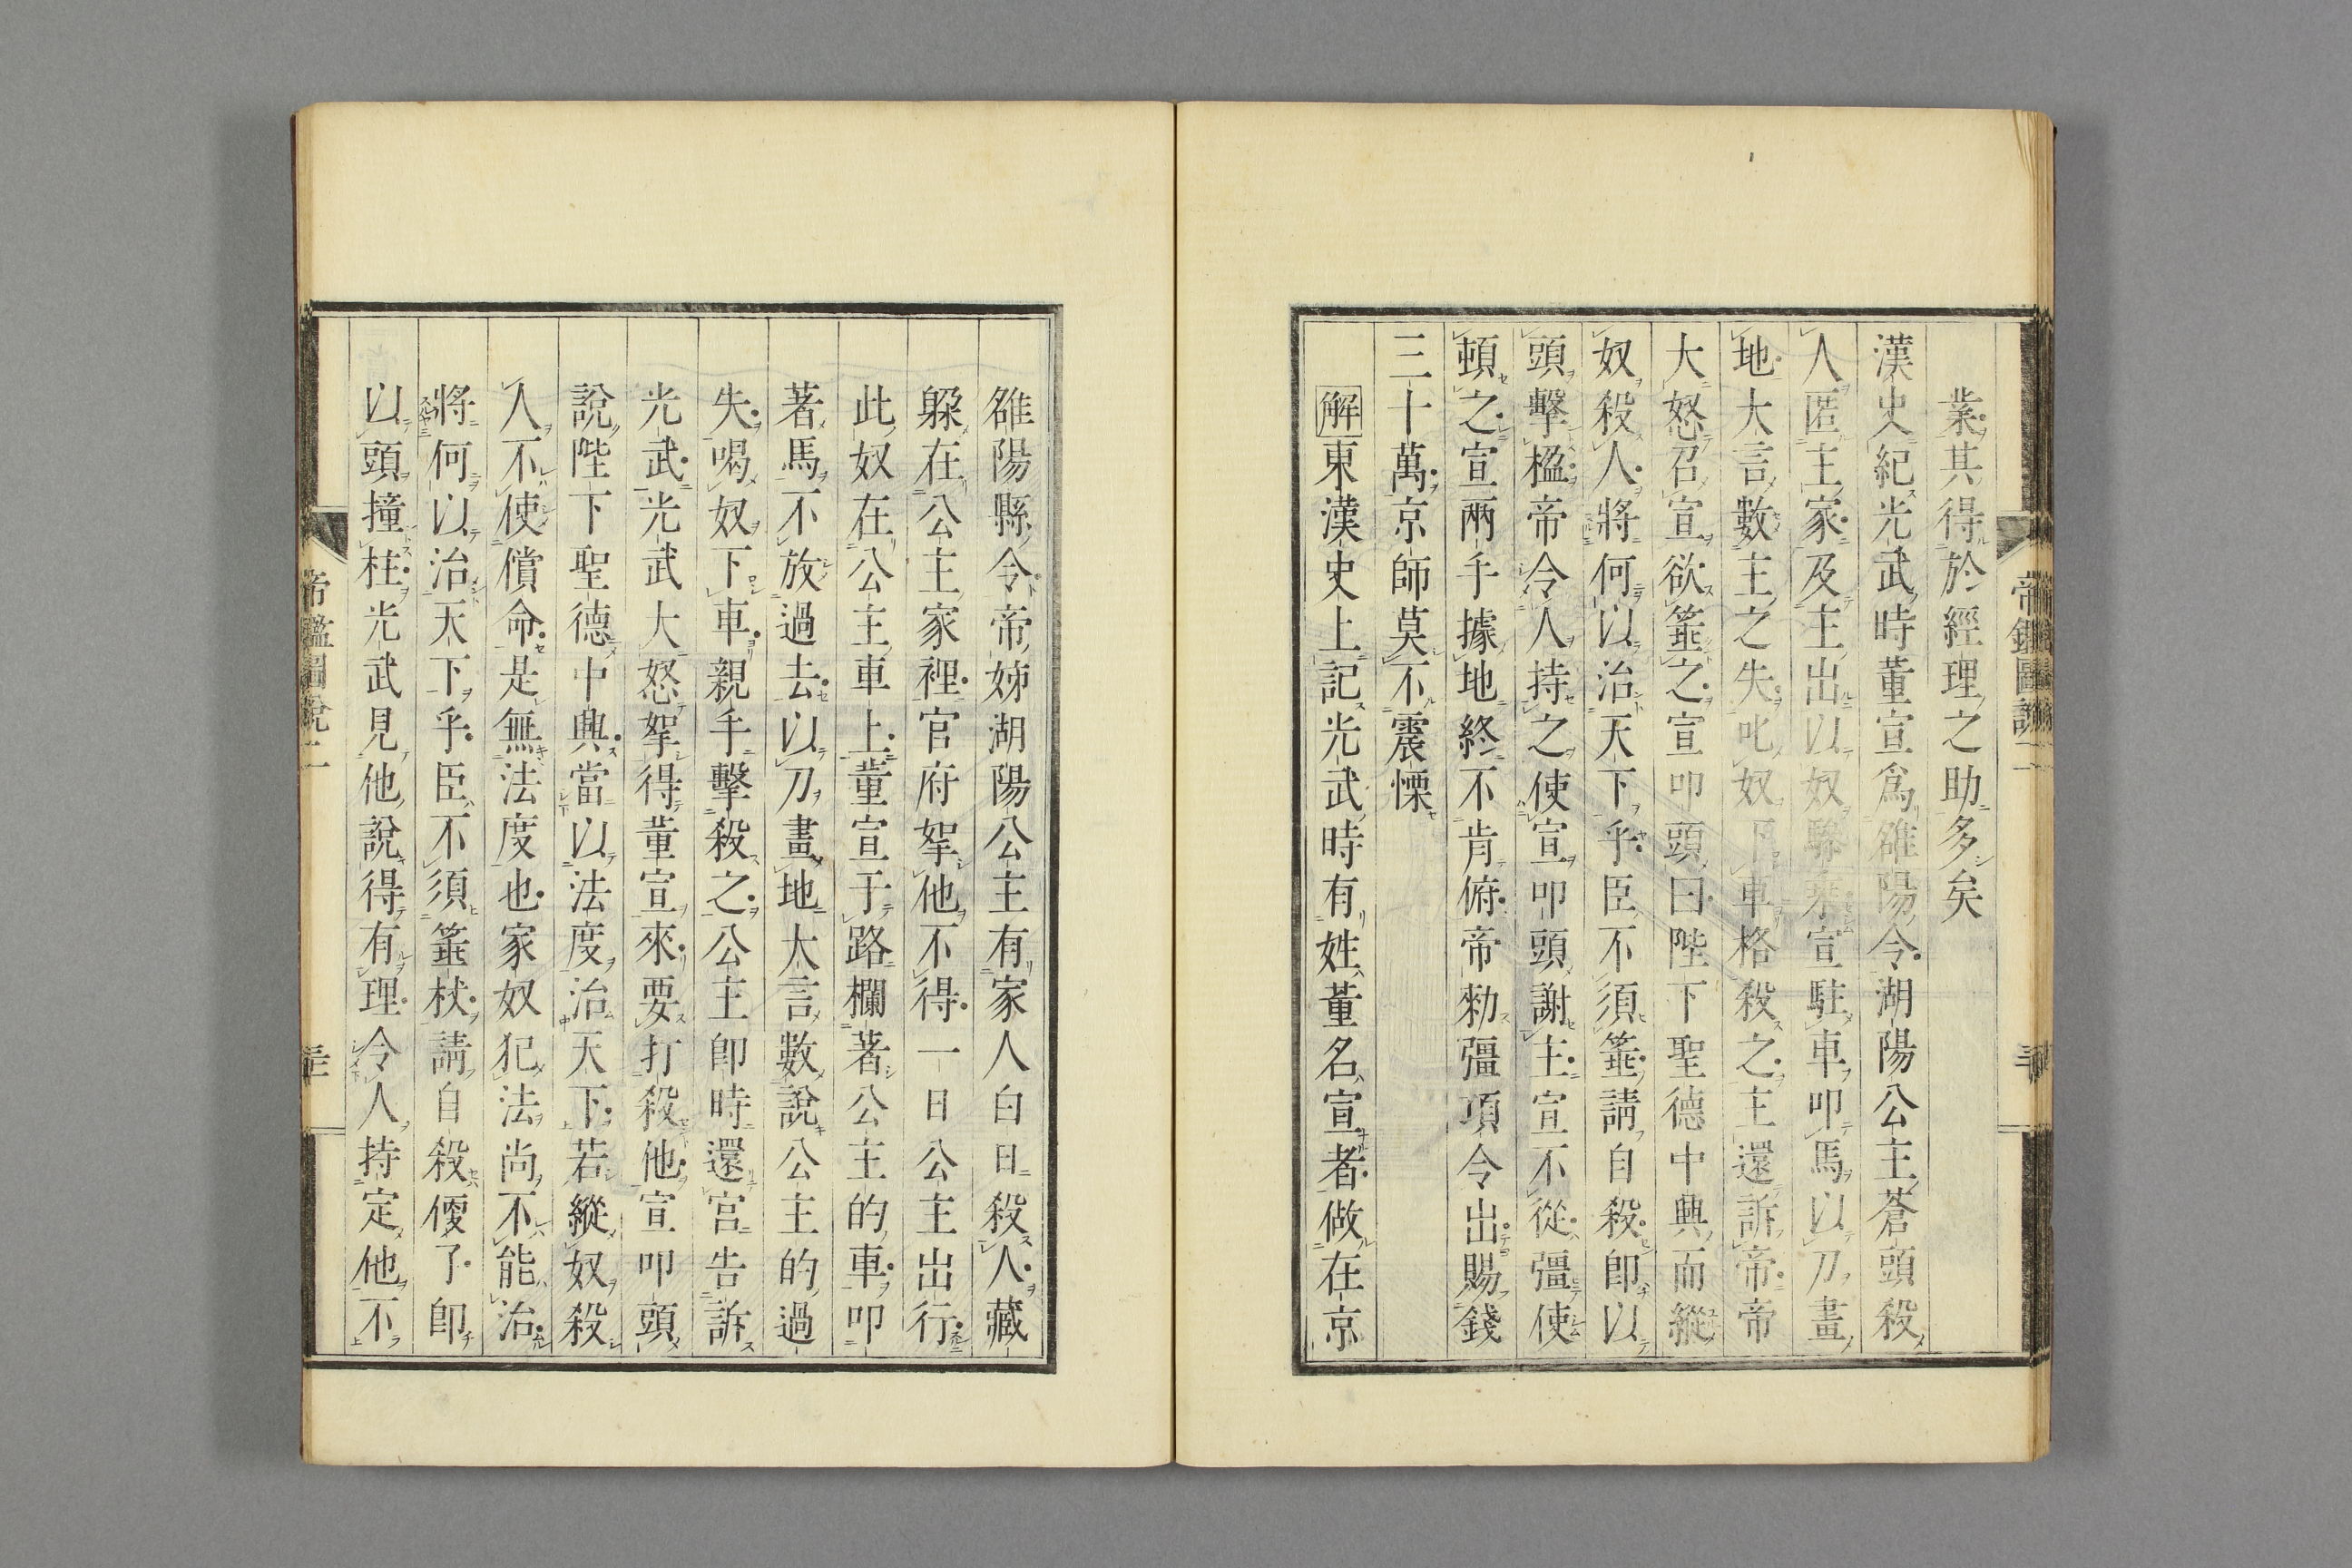 業其得於經理之助多矣
漢史紀光武時董宣爲雒陽令湖陽公主蒼頭殺
人匿主家及主出以奴驂乘宣駐車叩馬以刀畫
地大言數主之失叱奴下車格殺之主還訴帝帝
大怒召宣欲箠之宣叩頭曰陛下聖德中興而縱
奴殺人將何以治天下乎臣不須箠請自殺即以
頭擊楹帝令人持之使宣叩頭謝主宣不從彊使
頓之宣兩手據地終不肯俯帝勑彊項令出賜錢
三十萬京師莫不震慄
解東漢史上記光武時有姓董名宣者做在京
雒陽縣令帝姊湖陽公主有家人白日殺人藏
躱在公主家裡官府拏他不得一日公主出行
此奴在公主車上董宣于路欄著公主的車叩
著馬不放過去以刀畫地大言數說公主的過
失喝奴下車親手擊殺之公主即時還宮告訴
光武光武大怒拏得董宣來要打殺他宣叩頭
說陛下聖德中興當以法度治天下若縱奴殺
人不使償命是無法度也家奴犯法尚不能治
將何以治天下乎臣不須箠杖請自殺便了即
以頭撞柱光武見他說得有理令人持定他不
帝鑑圖說二